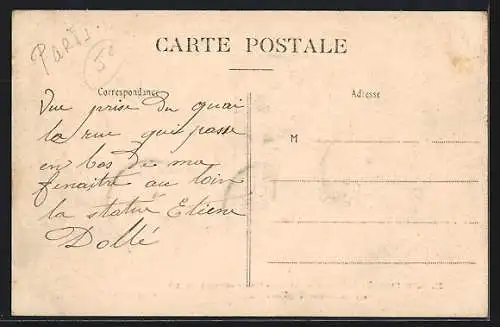 Paris.
5e
CARTE POSTALE
Correspondance
Adresse
Vue prise du quai
la rue qui passe
en bas de ma
fenaitre au loin
la statue Etiene
Dollé
M